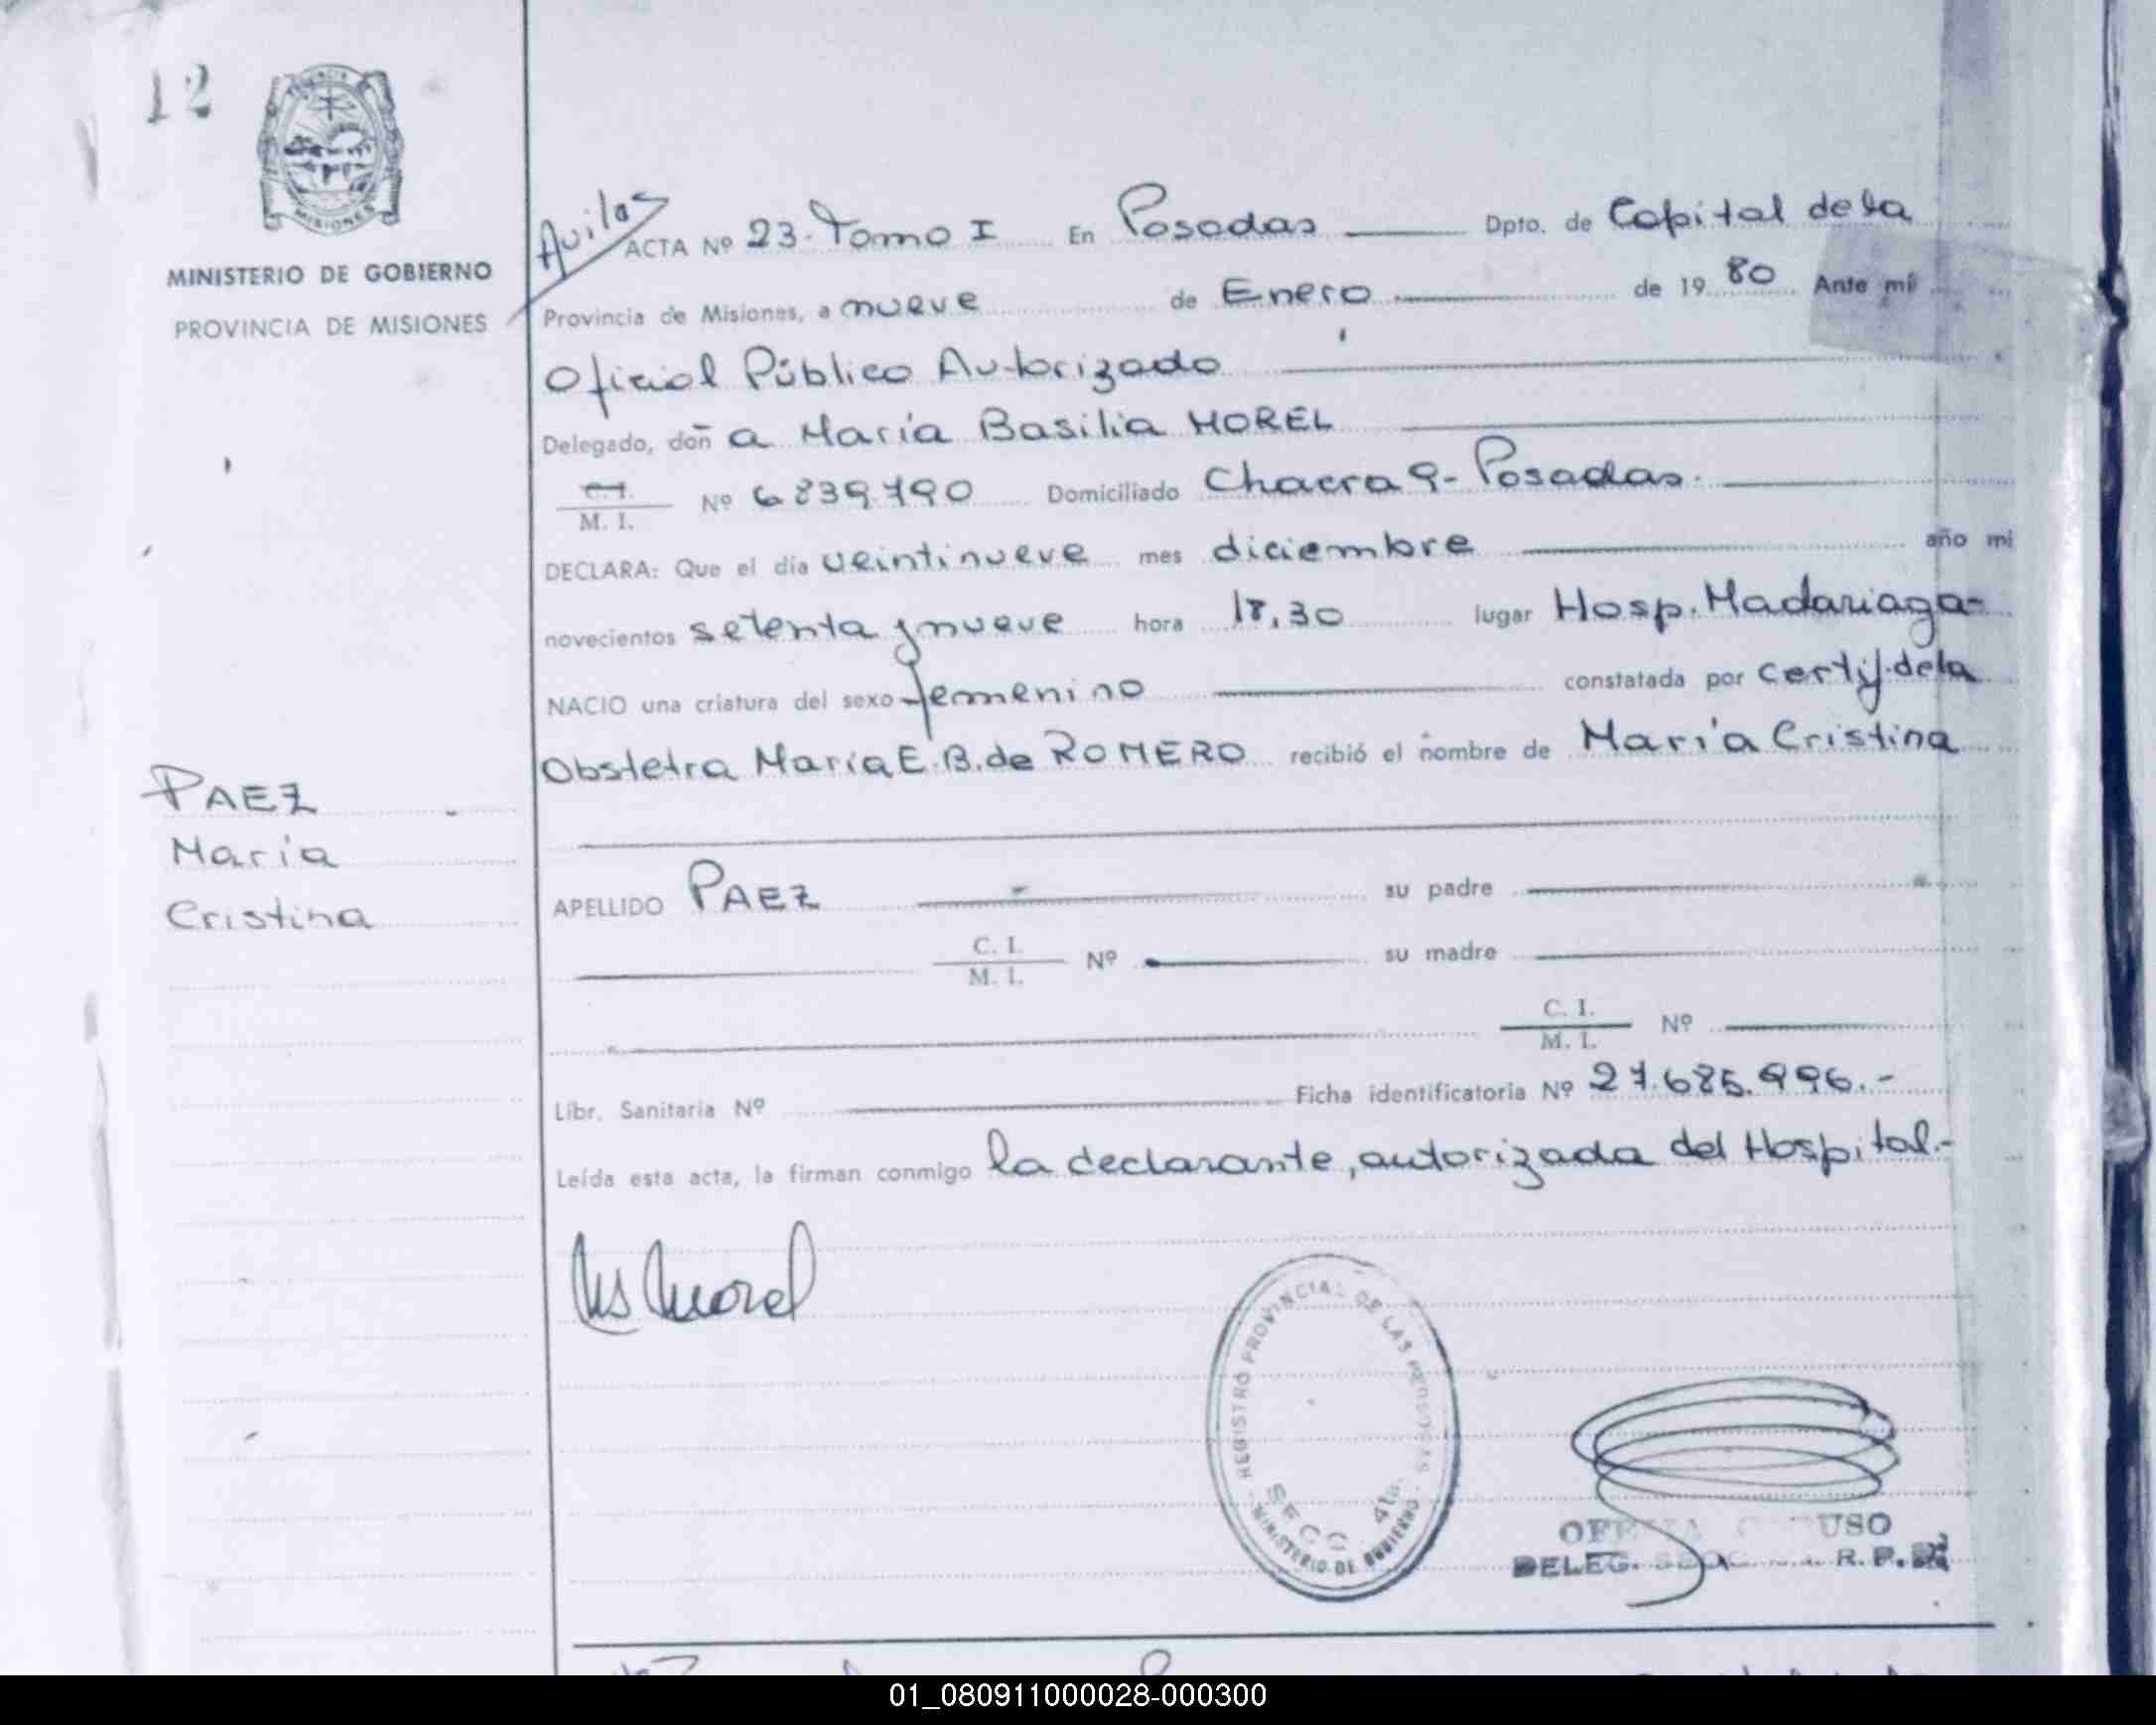 12
PROVINCIA
MISIONES
MINISTERIO DE GOBIERNO
PROVINCIA DE MISIONES
PAEZ
María
Cristina
ACTA Nº 23. Tomo I En Posadas Dpto. de Capital de la
Provincia de Misiones, a nueve de Enero de 19 80 Ante mí
Oficial Público Autorizado
Delegado, doñ a María Basilia MOREL
C. I.
M. I. Nº 6.839.790 Domiciliado Chacra 9- Posadas.
DECLARA: Que el día veintinueve mes diciembre año mi
novecientos setenta y nueve hora 18,30 lugar Hosp. Madariaga-
NACIO una criatura del sexo femenino constatada por certif. de la
Obstetra María E. B. de ROMERO recibió el nombre de María Cristina
APELLIDO PAEZ su padre
C. I.
M. I. Nº su madre
C. I.
M. I. Nº
Libr. Sanitaria Nº Ficha identificatoria Nº 27.685.996.-
Leída esta acta, la firman conmigo la declarante, autorizada del Hospital.-
Morel
REGISTRO PROVINCIAL DE LAS PERSONAS
SECC. 4ta.
MINISTERIO DE GOBIERNO
USO
DELEG. R. P.
01_080911000028-000300